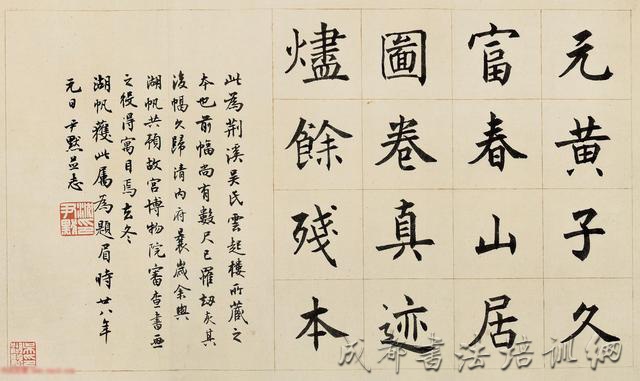 元黃子久
富春山居
圖卷真迹
燼餘殘本
此為荆溪吳氏雲起樓所藏之
本也前幅尚有數尺已罹劫灰其
後幅久歸清内府曩歲余與
湖帆共預故宮博物院審查書画
之役得寓目焉去冬
湖帆獲此属為題眉時廿八年
元日尹默并志
成都书法培训網